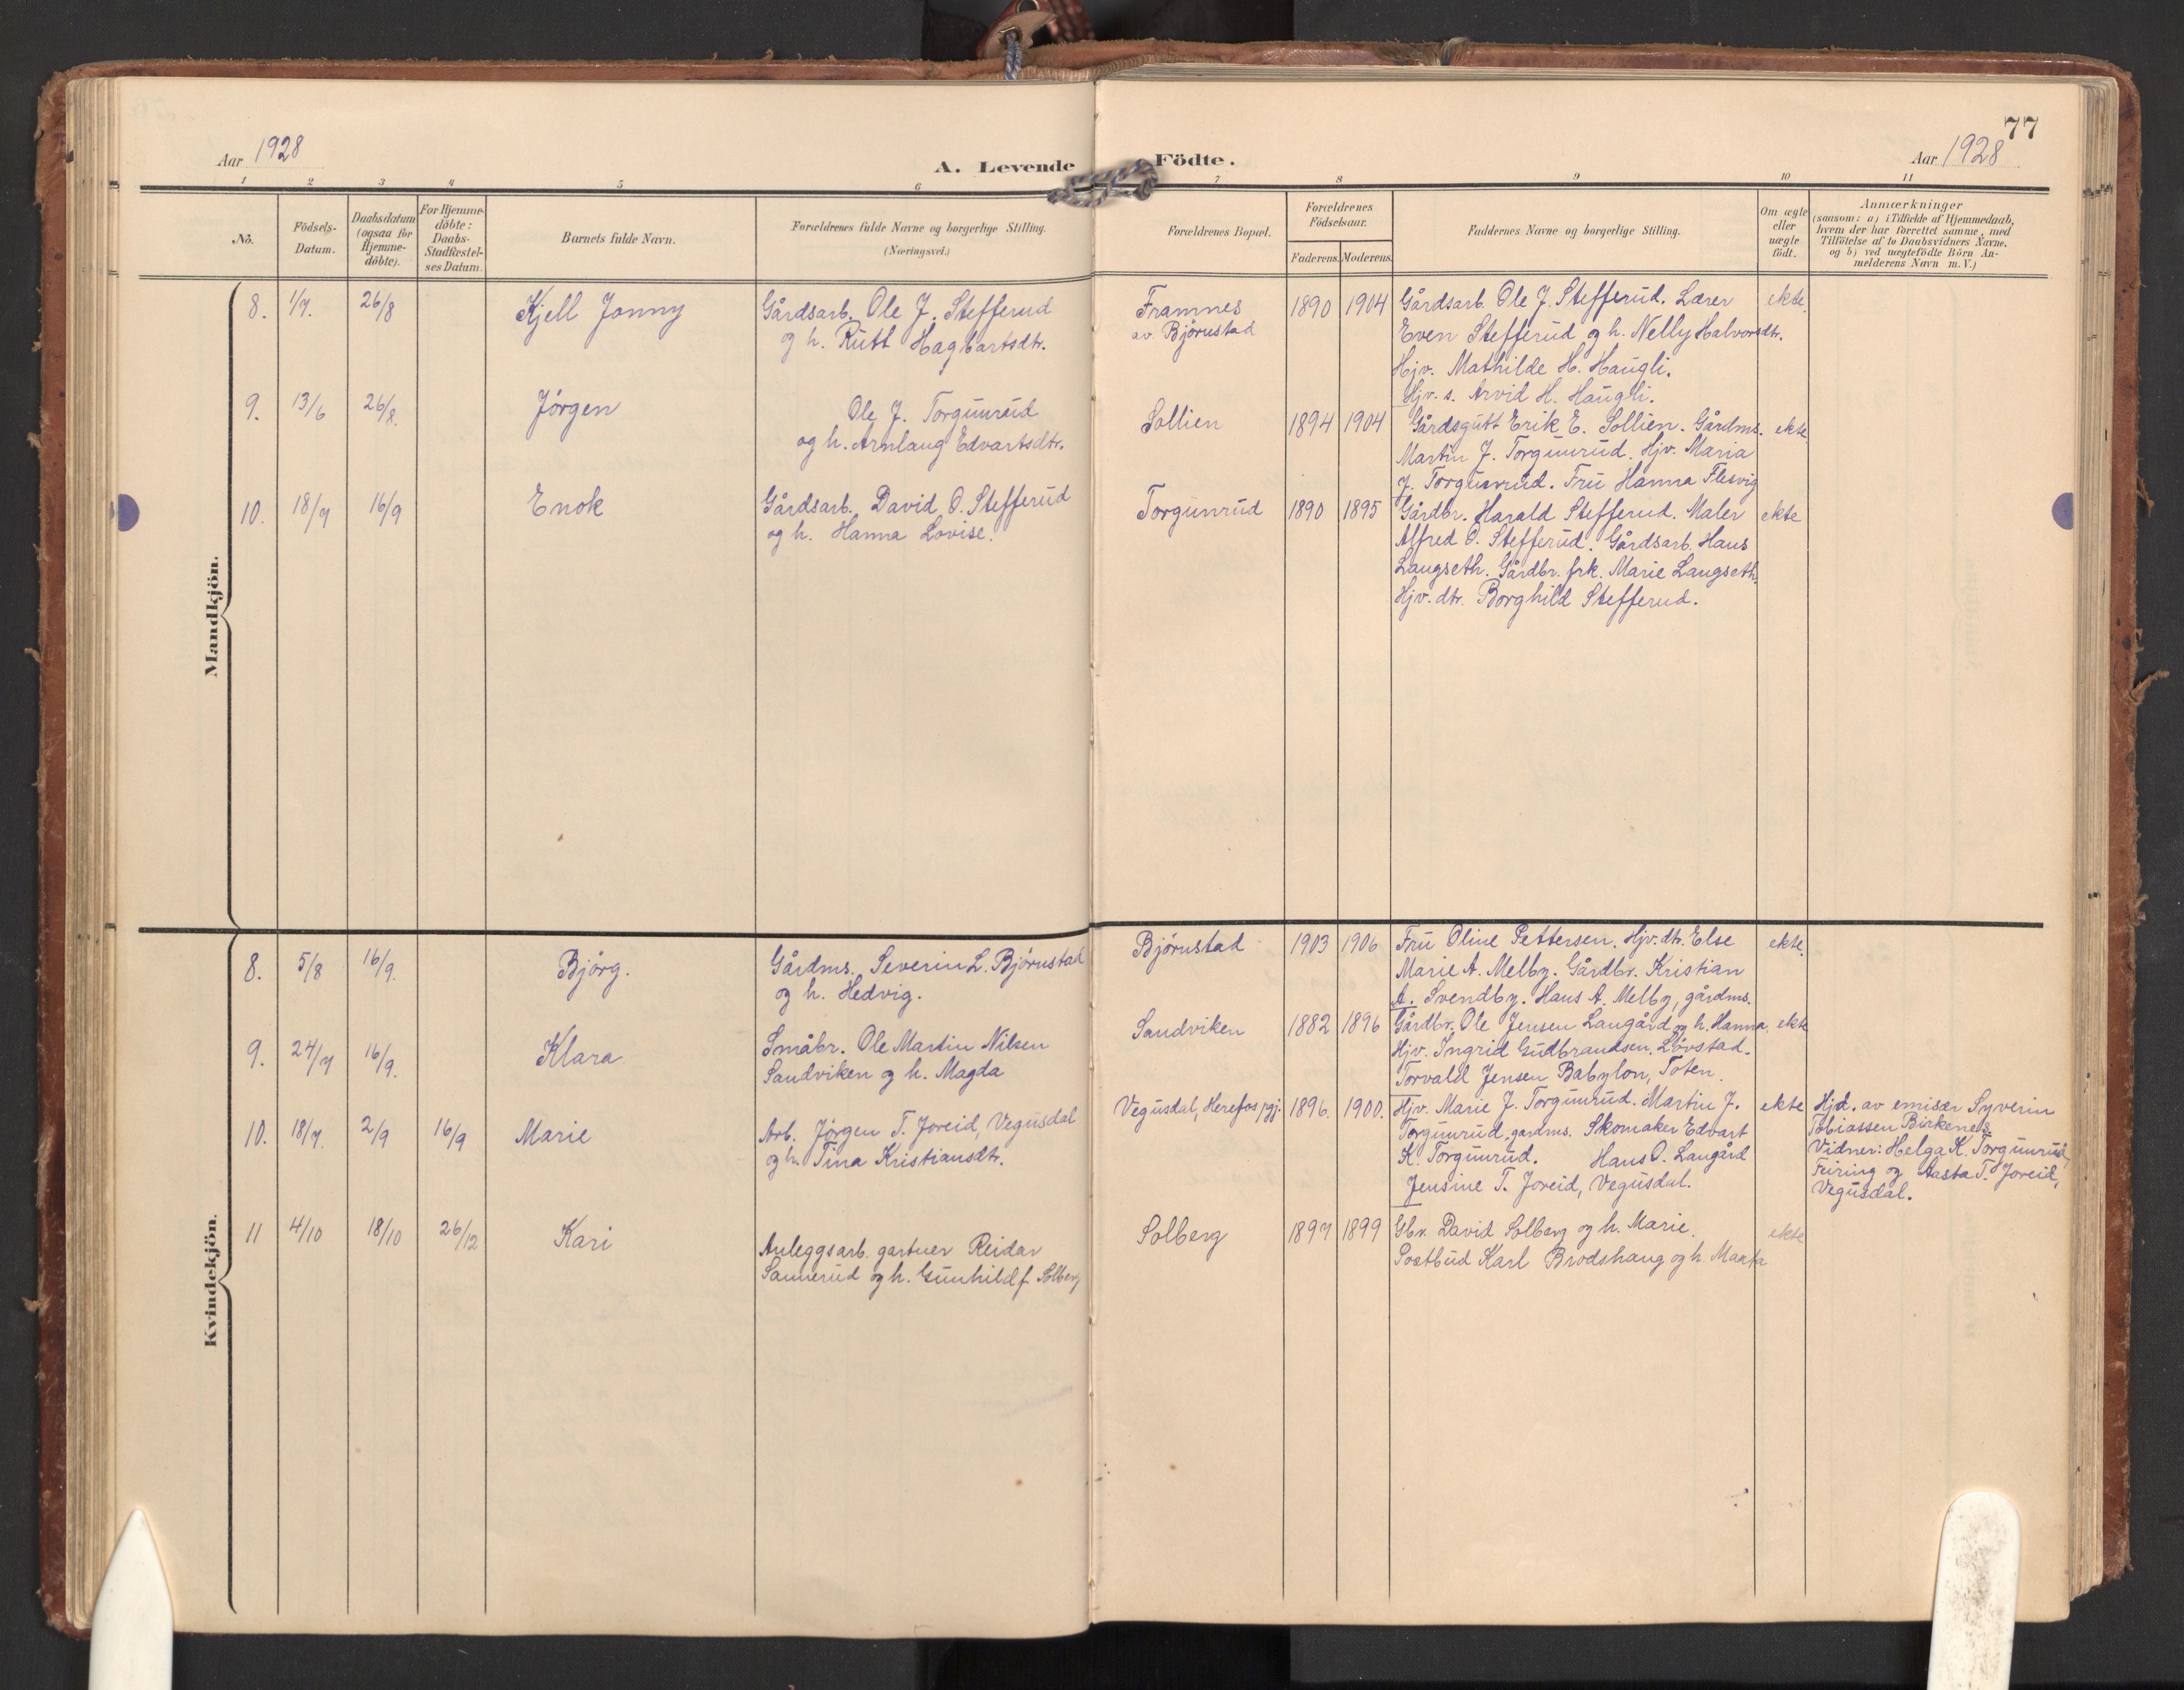 77
Aar 1928
A. Levende Födte.
Aar 1928
1 2 3 4 5 6 7 8 9 10 11
No.
Födsels-
Datum.
Daabsdatum
(ogsaa for
Hjemme-
döbte).
For Hjemme-
döbte:
Daabs-
Stadfæstel-
ses Datum.
Barnets fulde Navn.
Forældrenes fulde Navne og borgerlige Stilling.
(Næringsvei.)
Forældrenes Bopæl.
Forældrenes
Födselsaar.
Faderens. Moderens.
Faddernes Navne og borgerlige Stilling.
Om ægte
eller
uægte
födt.
Anmærkninger
(saasom: a) i Tilfælde af Hjemmedaab,
hvem der har forrettet samme, med
Tilföielse af to Daabsvidners Navne,
og b) ved uægtefödte Börn An-
melderens Navn m. V.)
Mandkjön.
8. 1/7. 26/8 Kjell Jonny
Gårdsarb. Ole J. Stefferud
og h. Rutt Hagbartsdtr.
Framnes
av Bjørnstad
1890 1904
Gårdsarb. Ole J. Stefferud. Lærer
Even Stefferud og h. Nelly Halvorsdtr.
Hjv. Mathilde H. Haugli.
Hjv. s. Arvid H. Haugli.
ekte.
9. 13/6 26/8. Jørgen
Ole J. Torgunrud
og h. Arnlaug Edvartsdtr.
Sollien
1894 1904
Gårdsgutt Erik E. Sollien. Gårdms.
Martin J. Torgunrud. Hjv. Maria
J. Torgunrud. Fru Hanna Flesvig
ekte.
10. 18/7 16/9 Enok
Gårdsarb. David O. Stefferud
og h. Hanna Lovise.
Torgunrud
1890 1895
Gårdbr. Harald Stefferud. Maler
Alfred O. Stefferud. Gårdsarb. Hans
Langseth. Gårdbr. frk. Marie Langseth.
Hjv. dtr. Borghild Stefferud.
ekte
Kvindekjön.
8. 5/8 16/9. Bjørg.
Gårdms. Severin L. Bjørnstad
og h. Hedvig.
Bjørnstad
1903 1906
Fru Oline Pettersen. Hjv. dtr. Else
Marie A. Melby. Gårdbr. Kristian
A. Svendby. Hans A. Melby, gårdms.
ekte.
9. 24/7 16/9. Klara
Småbr. Ole Martin Nilsen
Sandviken og h. Magda
Sandviken
1882 1896
Gårdbr. Ole Jensen Langård og h. Hanna.
Hjv. Ingrid Gudbrandsen, Løvstad.
Torvald Jensen Babylon, Toten.
ekte
10. 18/7. 2/9 16/9 Marie
Arb. Jørgen T. Joreid, Vegusdal
og h. Tina Kristiansdtr.
Vegusdal, Herefos pgj.
1896. 1900.
Hjv. Marie J. Torgunrud. Martin J.
Torgunrud, gardms. Skomaker Edvart
K. Torgunrud. Hans O. Langård
Jensine T. Joreid, Vegusdal.
ekte
Hjd. av emisær Syverin
Tobiassen Birkenes.
Vidner: Helga K. Torgunrud,
Feiring og Aasta T. Joreid,
Vegusdal.
11 4/10 18/10 26/12 Kari
Anleggsarb. gartner Reidar
Sannerud og h. Gunhild f. Solberg
Solberg
1897 1899
Gbr. David Solberg og h. Marie.
Postbud Karl Brodshaug og h. Marta
ekte